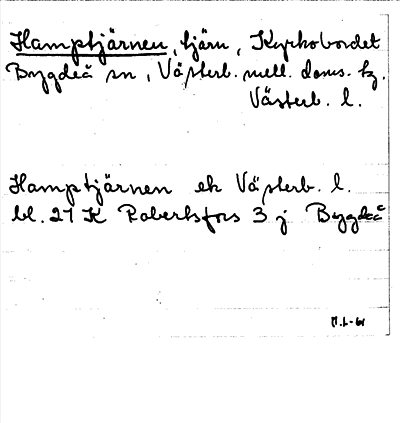 Hamptjärnen, tjärn, Kyrkobordet
Bygdeå sn, Västerb. mell. doms. tg.
Västerb. l.
Hamptjärnen ek Västerb. l.
bl. 21 K Robertsfors 3 j Bygdeå